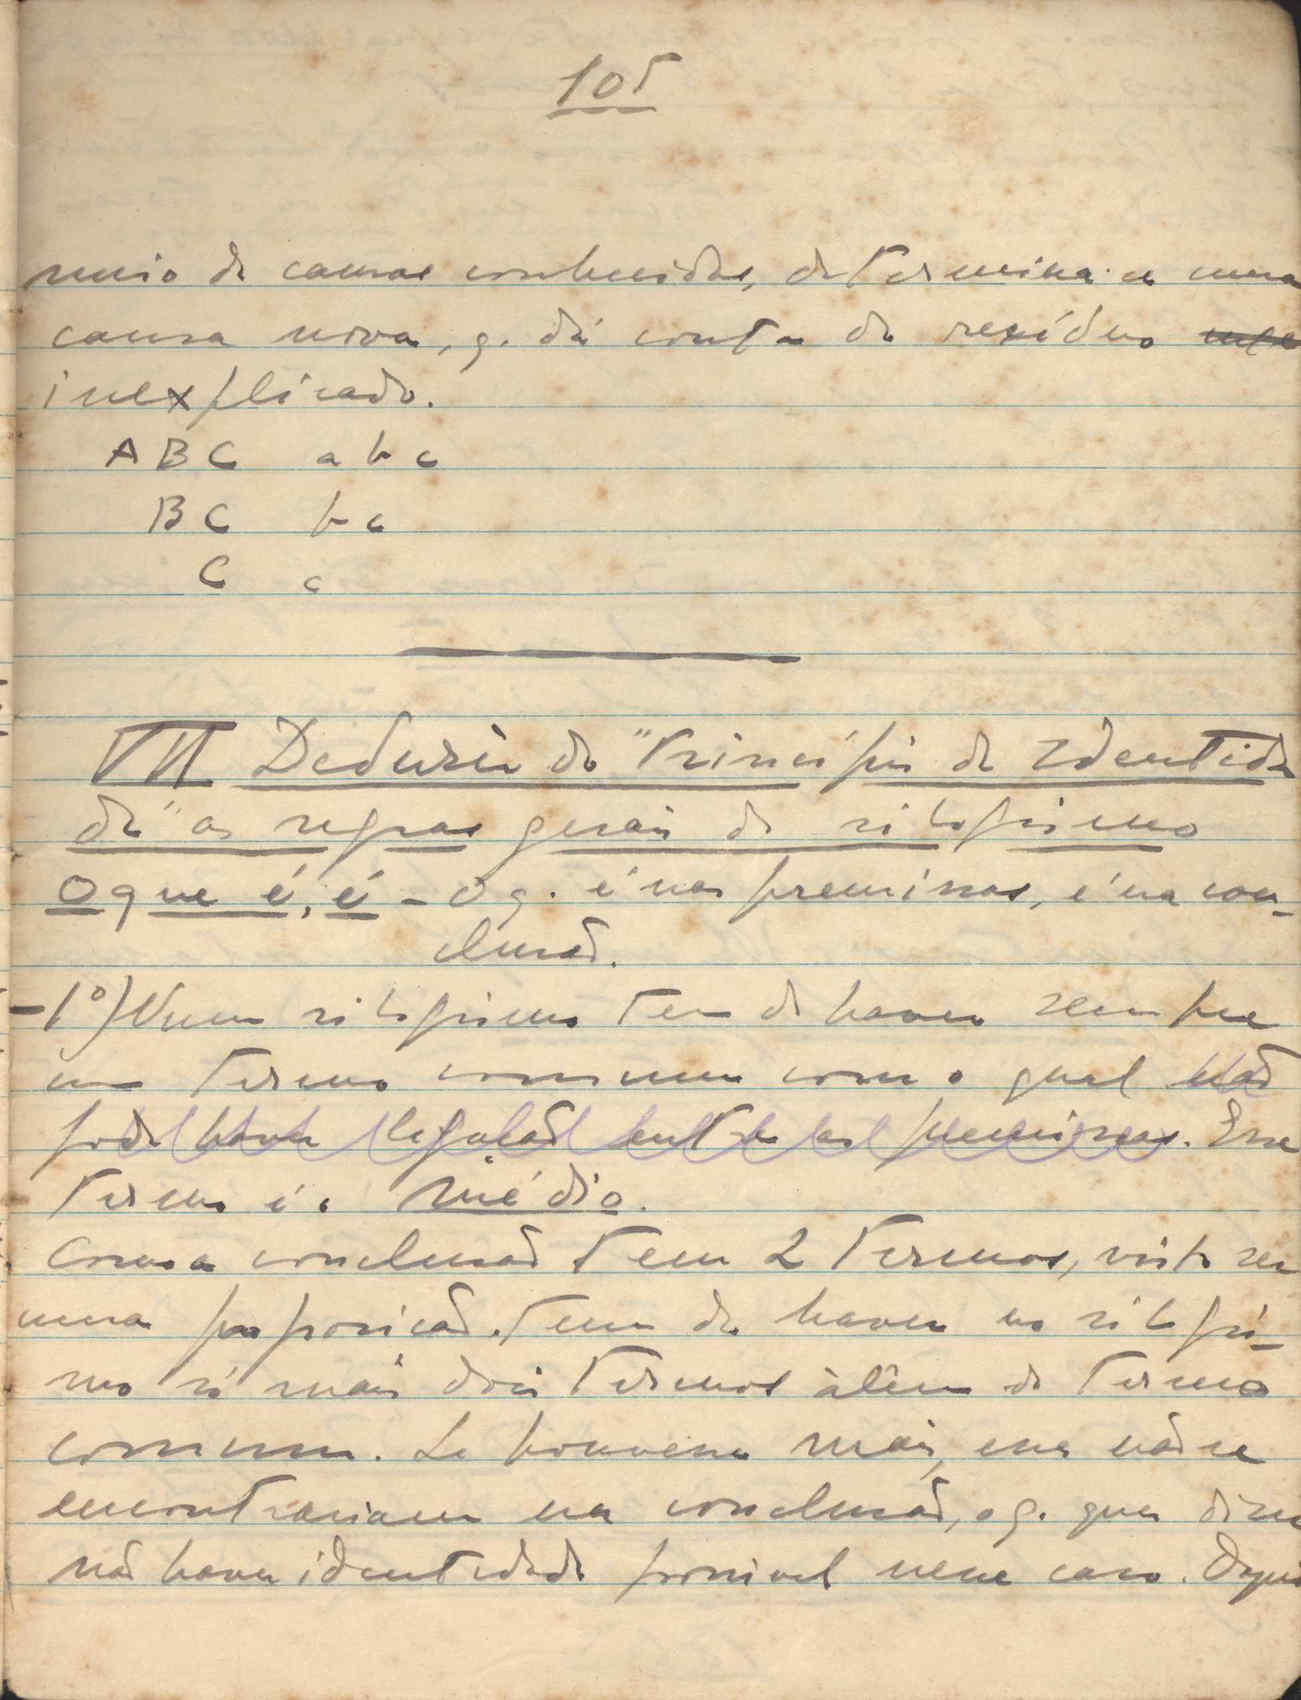 105
meio de causas conhecidas, determina-se uma
causa nova, q. dá conta do resíduo
inexplicado.
A B C a b c
B C b c
C c
VII Deduzir do "Princípio de Identida
de" as regras gerais do silogismo
O que é, é - O q. é nas premissas, é na con-
clusão.
- 1º) Num silogismo tem de haver sempre
um termo comum com o qual não
pode haver ligação entre as premissas. Esse
termo é o médio.
Como a conclusão tem 2 termos, visto ser
uma proposição. Tem de haver no silogis-
mo só mais dois termos àlém do termo
comum. Se houvesse mais, esses não se
encontrariam na conclusão, o q. quer dizer
não haver identidade possível nesse caso. Daqui